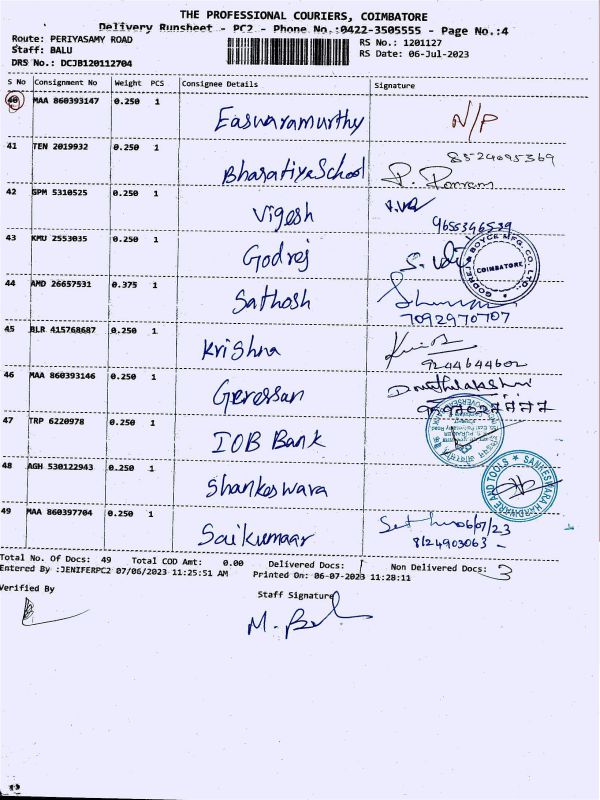 THE PROFESSIONAL COURIERS, COIMBATORE
Delivery Runsheet - PC2 - Phone No.:0422-3505555 - Page No.:4
Route: PERIYASAMY ROAD
RS No.: 1201127
Staff: BALU
RS Date: 06-Jul-2023
DRS No.: DCJB120112704
S No Consignment No Weight PCS Consignee Details Signature
40 MAA 860393147 0.250 1 Easwaramurthy N/P
41 TEN 2019932 0.250 1 Bharatiya School 8524095369
42 GPM 5310525 0.250 1 Vigesh
9655346539
43 KMU 2553035 0.250 1 Godrej
GODREJ & BOYCE MFG. CO. LTD. COIMBATORE
44 AMD 26657531 0.375 1 Sathosh
7092970707
45 BLR 415768687 0.250 1 Krishna
9244644602
46 MAA 860393146 0.250 1
47 TRP 6220978 0.250 1 IOB Bank
48 AGH 530122943 0.250 1 Shankeswara
SANKESWARA HARDWARE AND TOOLS
49 MAA 860397704 0.250 1 Saikumaar 06/07/23
8124903063
Total No. Of Docs: 49 Total COD Amt: 0.00 Delivered Docs: Non Delivered Docs: 3
Entered By :JENIFERPC2 07/06/2023 11:25:51 AM Printed On: 06-07-2023 11:28:11
Verified By
Staff Signature